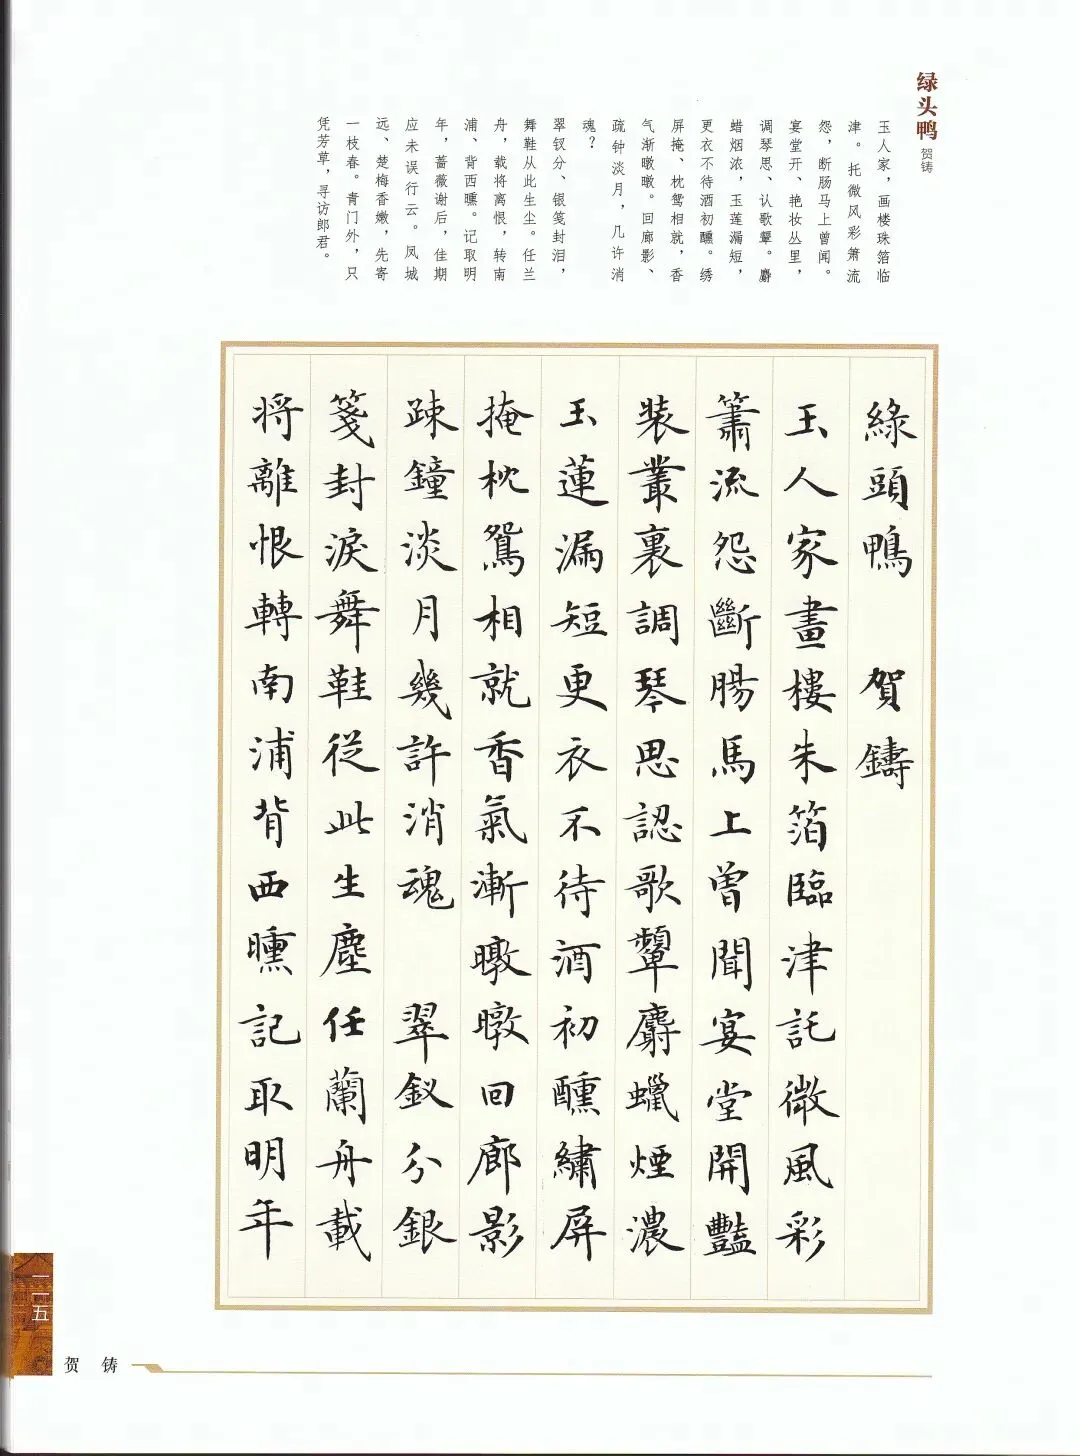 绿头鸭
贺铸
玉人家，画楼珠箔临
津。托微风彩箫流
怨，断肠马上曾闻。
宴堂开、艳妆丛里，
调琴思、认歌颦。麝
蜡烟浓，玉莲漏短，
更衣不待酒初醺。绣
屏掩、枕鸳相就，香
气渐暾暾。回廊影、
疏钟淡月，几许消
魂？
翠钗分、银笺封泪，
舞鞋从此生尘。任兰
舟，载将离恨，转南
浦、背西曛。记取明
年，蔷薇谢后，佳期
应未误行云。凤城
远、楚梅香嫩，先寄
一枝春。青门外，只
凭芳草，寻访郎君。
綠頭鴨 賀鑄
玉人家畫樓朱箔臨津託微風彩
簫流怨斷腸馬上曾聞宴堂開豔
裝叢裏調琴思認歌顰麝蠟煙濃
玉蓮漏短更衣不待酒初醺繡屏
掩枕鴛相就香氣漸暾暾回廊影
疎鐘淡月幾許消魂 翠釵分銀
箋封淚舞鞋從此生塵任蘭舟載
將離恨轉南浦背西曛記取明年
一一五
贺铸